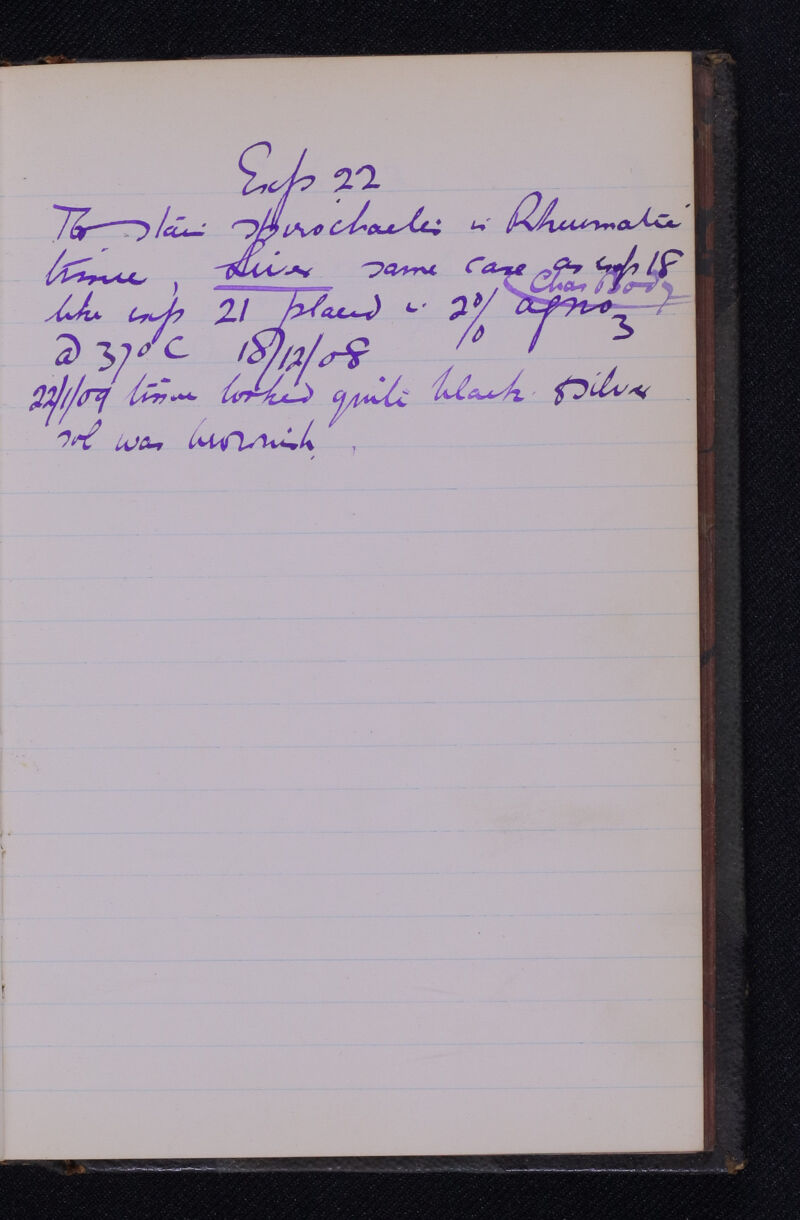 Exp 22
To stain spirochaetes in Rheumatic
tissue, Liver same case as exp 18
Chas Body
like exp 21 placed in 2% AgNO3
@ 37°C 18/12/08
22/1/09 tissue looked quite black. Silver
sol was brownish.